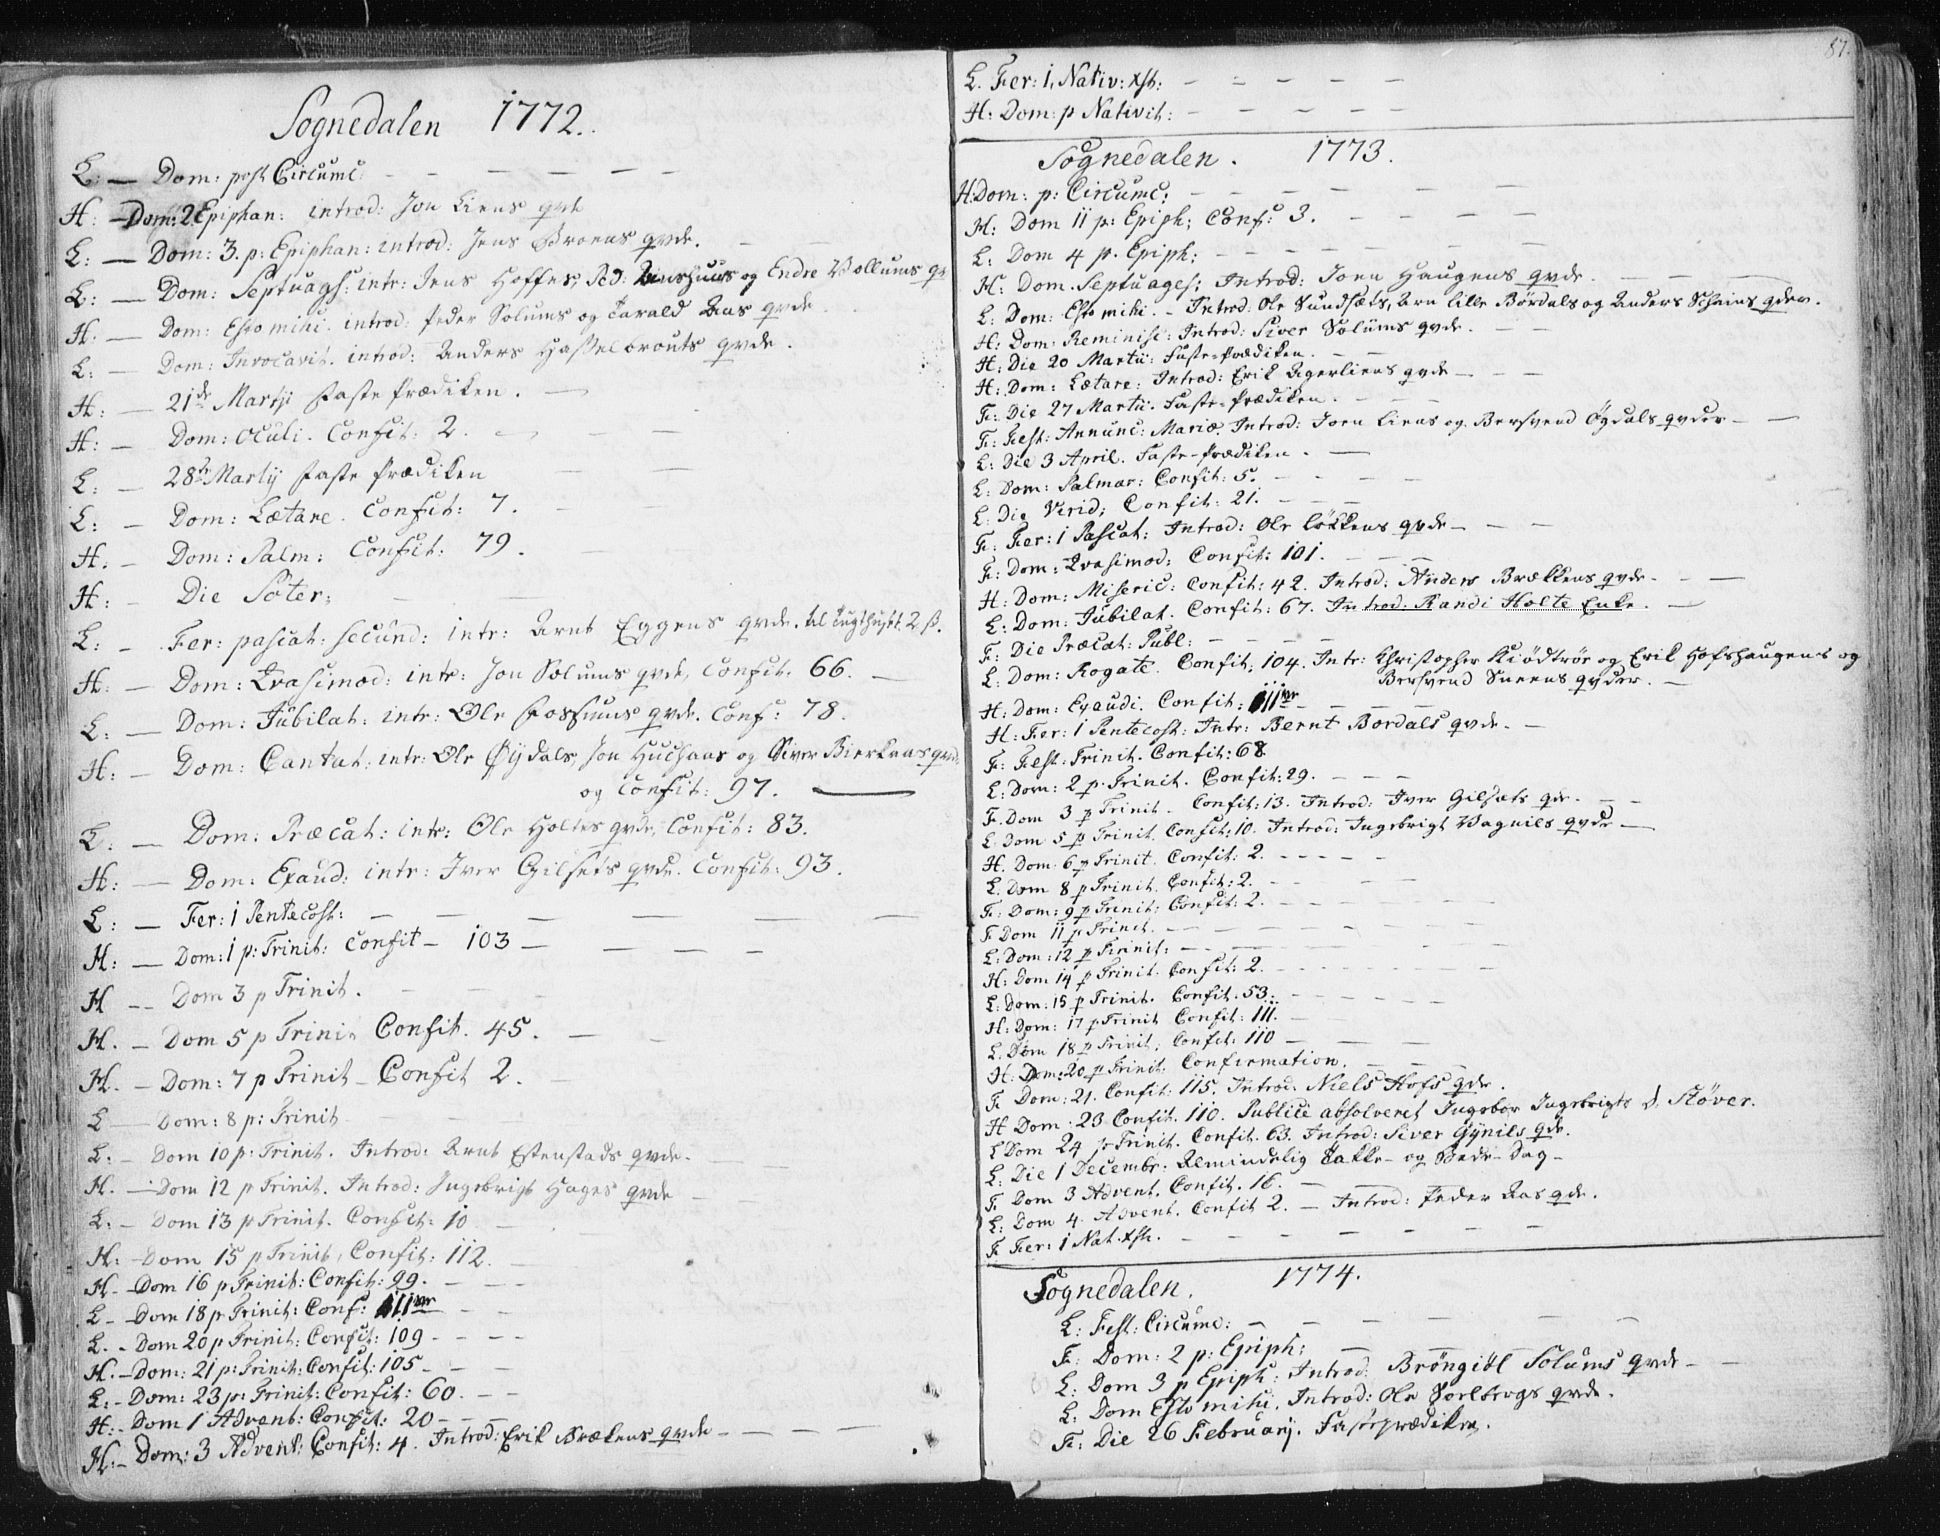 Sognedalen 1772.
L: — Dom: post Circumc:
H: — Dom: 2 Epiphan: introd: Jon Liens qvde
L: — Dom: 3. p: Epiphan: introd: Jens Broens qvde.
L: — Dom: Septuags: intr: Jens Hoffes, Ped: Aarshuus og Endre Vollums qv
H: — Dom: Esto mihi. introd: Peder Solums og Tarald Aas qvde
L: — Dom: Invocavit. introd: Anders Hasselbrouts qvde.
H: — 21de Martji Faste Prædiken. —
H: — Dom: Oculi. Confit: 2.
L: — 28de Martij Faste Prædiken
L: — Dom: Lætare. Confit: 7.
H. — Dom: Palm: Confit: 79.
H: — Die Soter;
L: — Fer: pascat: secund: intr: Arnt Eggens qvde. til Tugthuset 2 ß.
H: — Dom: Qvasimod: intr: Jon Solums qvde, Confit. 66. —
L: — Dom: Jubilat: intr: Ole Fossums qvde. Conf: 78.
H: — Dom: Cantat: intr: Ole Øydals, Jon Huusaas og Siver Bierkaas qvde
og Confit: 97. —
L: — Dom: Præcat: intr: Ole Holtes qvde, Confit: 83.
H: — Dom: Exaud: intr: Iver Gilsets qvde. Confit: 93.
L: — Fer: 1 Pentecost: — — — — —
H: — Dom: 1 p: Trinit: Confit — 103 —
H — Dom 3 p Trinit.
H. — Dom 5 p Trinit Confit. 45. —
H. — Dom: 7 p Trinit — Confit 2.
L — Dom: 8 p: Trinit
L: — Dom 10 p: Trinit. Introd: Arnt Estenstads qvde.
H. — Dom 12 p Trinit. Introd: Ingebrigt Hages qvde
L: — Dom 13 p Trinit. Confit: 10
H: — Dom 15 p Trinit, Confit: 112.
H — Dom 16 p Trinit: Confit: 99.
L — Dom 18 p Trinit: Conf: 111
L. — Dom 20 p Trinit: Confit: 109
H. — Dom: 21 p: Trinit: Confit: 105
L: — Dom: 23 p: Trinit: Confit: 60.
H: — Dom 1 Advent: Confit: 20
H: — Dom: 3 Advent: Confit: 4. Introd: Erik Brækens qvde
87.
L. Fer: 1, Nativ: Xsti:
H: Dom: p Nativit:
Sognedalen. 1773.
H. Dom: p: Circumc:
H: Dom 11 p: Epiph: Conf: 3.
L: Dom 4 p. Epiph:
H: Dom. Septuages; Introd: Joen Haugens qvde.
L: Dom: Esto mihi. — Introd: Ole Sundsæts, Arn lille Bördals og Anders Scheins qder.
H: Dom: Reminisc: Introd: Siver Solums qvde.
H: Die 20 Martii: Faste-Prædiken.
H: Dom: Lætare: Introd: Erik Agerliens qvde —
F: Die 27 Martii. Faste-Prædiken.
F: Fest: Annunc: Mariæ. Introd: Joen Liens og Bersvend Ögdals qvder —
L: Die 3 April. Faste-Prædiken.
L: Dom: Palmar: Confit: 5.
L: Die Virid; Confit: 21.
F: Fer: 1 Pascat: Introd: Ole Lökkens qvde —
F: Dom: Qvasimod: Confit: 101.
H: Dom: Miseric: Confit: 42. Introd: Anders Brækkens qvde.
L: Dom: Jubilat. Confit: 67. Introd: Randi Holte Enke.
F: Die Præcat: Publ:
L: Dom: Rogate. Confit: 104. Intr: Christopher Kiödtrör og Erik Hofshaugens og
Bersvend Sneens qvder.
H: Dom: Exaudi. Confit: 111
H: Fer: 1 Pentecost: Intr: Bernt Bordals qvde.
F: Fest: Trinit. Confit: 68
L: Dom: 2 p. Trinit. Confit: 29.
F. Dom 3 p Trinit. Confit: 13. Introd: Iver Gilsæts qde.
L. Dom 5 p Trinit. Confit: 10. Introd: Ingebrigt Vagnils qvde —
H. Dom. 6 p Trinit. Confit: 2.
L. Dom 8 p Trinit. Confit: 2.
F: Dom: 9 p Trinit: Confit: 2.
F Dom 11 p Trinit.
L: Dom: 12 p Trinit:
H: Dom 14 p Trinit. Confit: 2.
L: Dom: 15 p Trinit. Confit. 53.
H: Dom: 17 p Trinit Confit: 111.
L. Dom 18 p Trinit. Confit: 110
H: Dom: 20 p Trinit. Confirmation.
F Dom: 21. Confit: 115. Introd: Niels Hofs qde.
H Dom: 23 Confit. 110. Publice absolveret Ingebor Ingebrigts D. Støver.
L Dom 24 p Trinit. Confit. 63. Introd: Siver Gynils qde.
L: Die 1 Decembr: Almindelig Takke- og Bede-Dag —
F Dom 3 Advent. Confit. 16.
L: Dom 4. Advent. Confit 2. — Introd: Peder Aas qde.
F Fer: 1 Nat. Xsti.
Sognedalen. 1774.
L: Fest: Circumc:
F: Dom: 2 p: Epiph:
L: Dom 3 p Epiph: Introd: Bröngiöl Solums qvde
L: Dom Esto mihi. Introd: Ole Sorlbergs qvde.
F: Die 26 Februarij. Fasteprædiken.